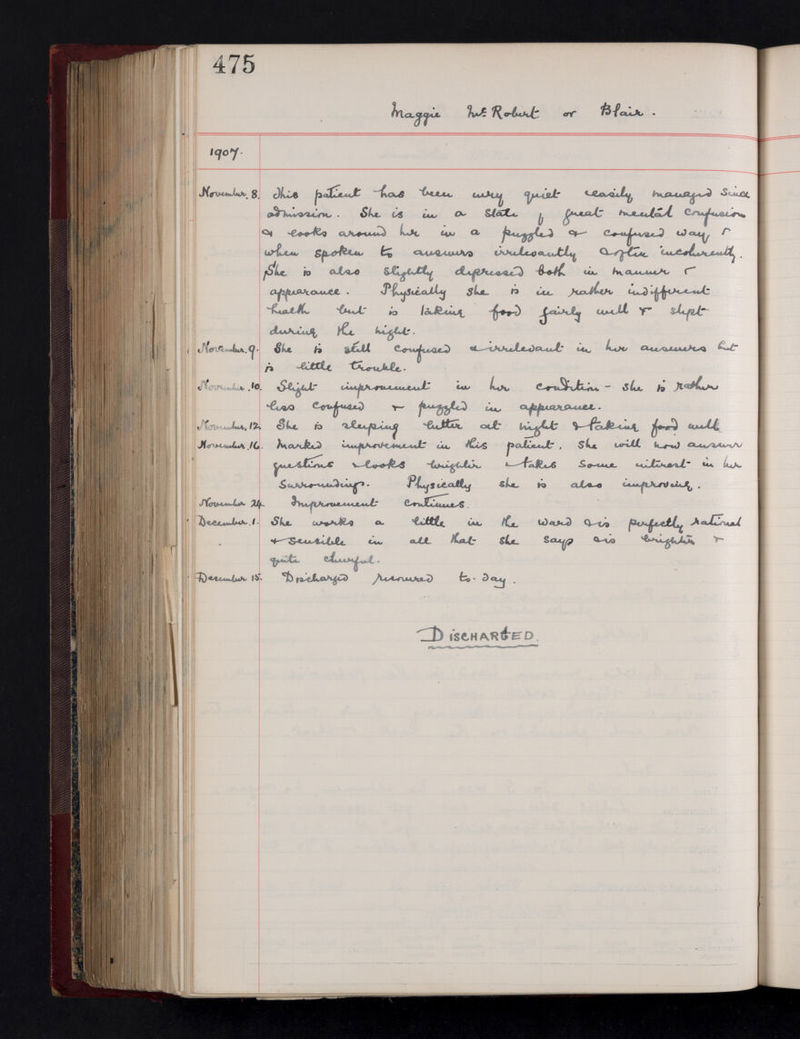 475
Maggie McRobert or Blair.
1907.
November. 8. This patient has been very quiet & easily managed since
admission. She is in a state of great mental confusion
& looks around her in a puzzled & confused way, &
when spoken to answers irrelevantly & often incoherently.
She is also slightly depressed both in manner &
appearance. Physically she is in rather indifferent
health but is taking food fairly well & slept
during the night.
November. 9. She is still confused & irrelevant in her answers but
is little trouble.
November. 10. Slight improvement in her condition - she is rather
less confused & puzzled in appearance.
November, 12. She is sleeping better at night & taking food well.
November 16. Marked improvement in this patient. She will now answer
questions & looks brighter & takes some interest in her
surroundings. Physically she is also improving.
November 24. Improvement continues.
December. 1. She works a little in the ward & is perfectly rational
& sensible in all that she says & is brighter &
quite cheerful.
December 15. Discharged recovered to-day.
DISCHARGED.